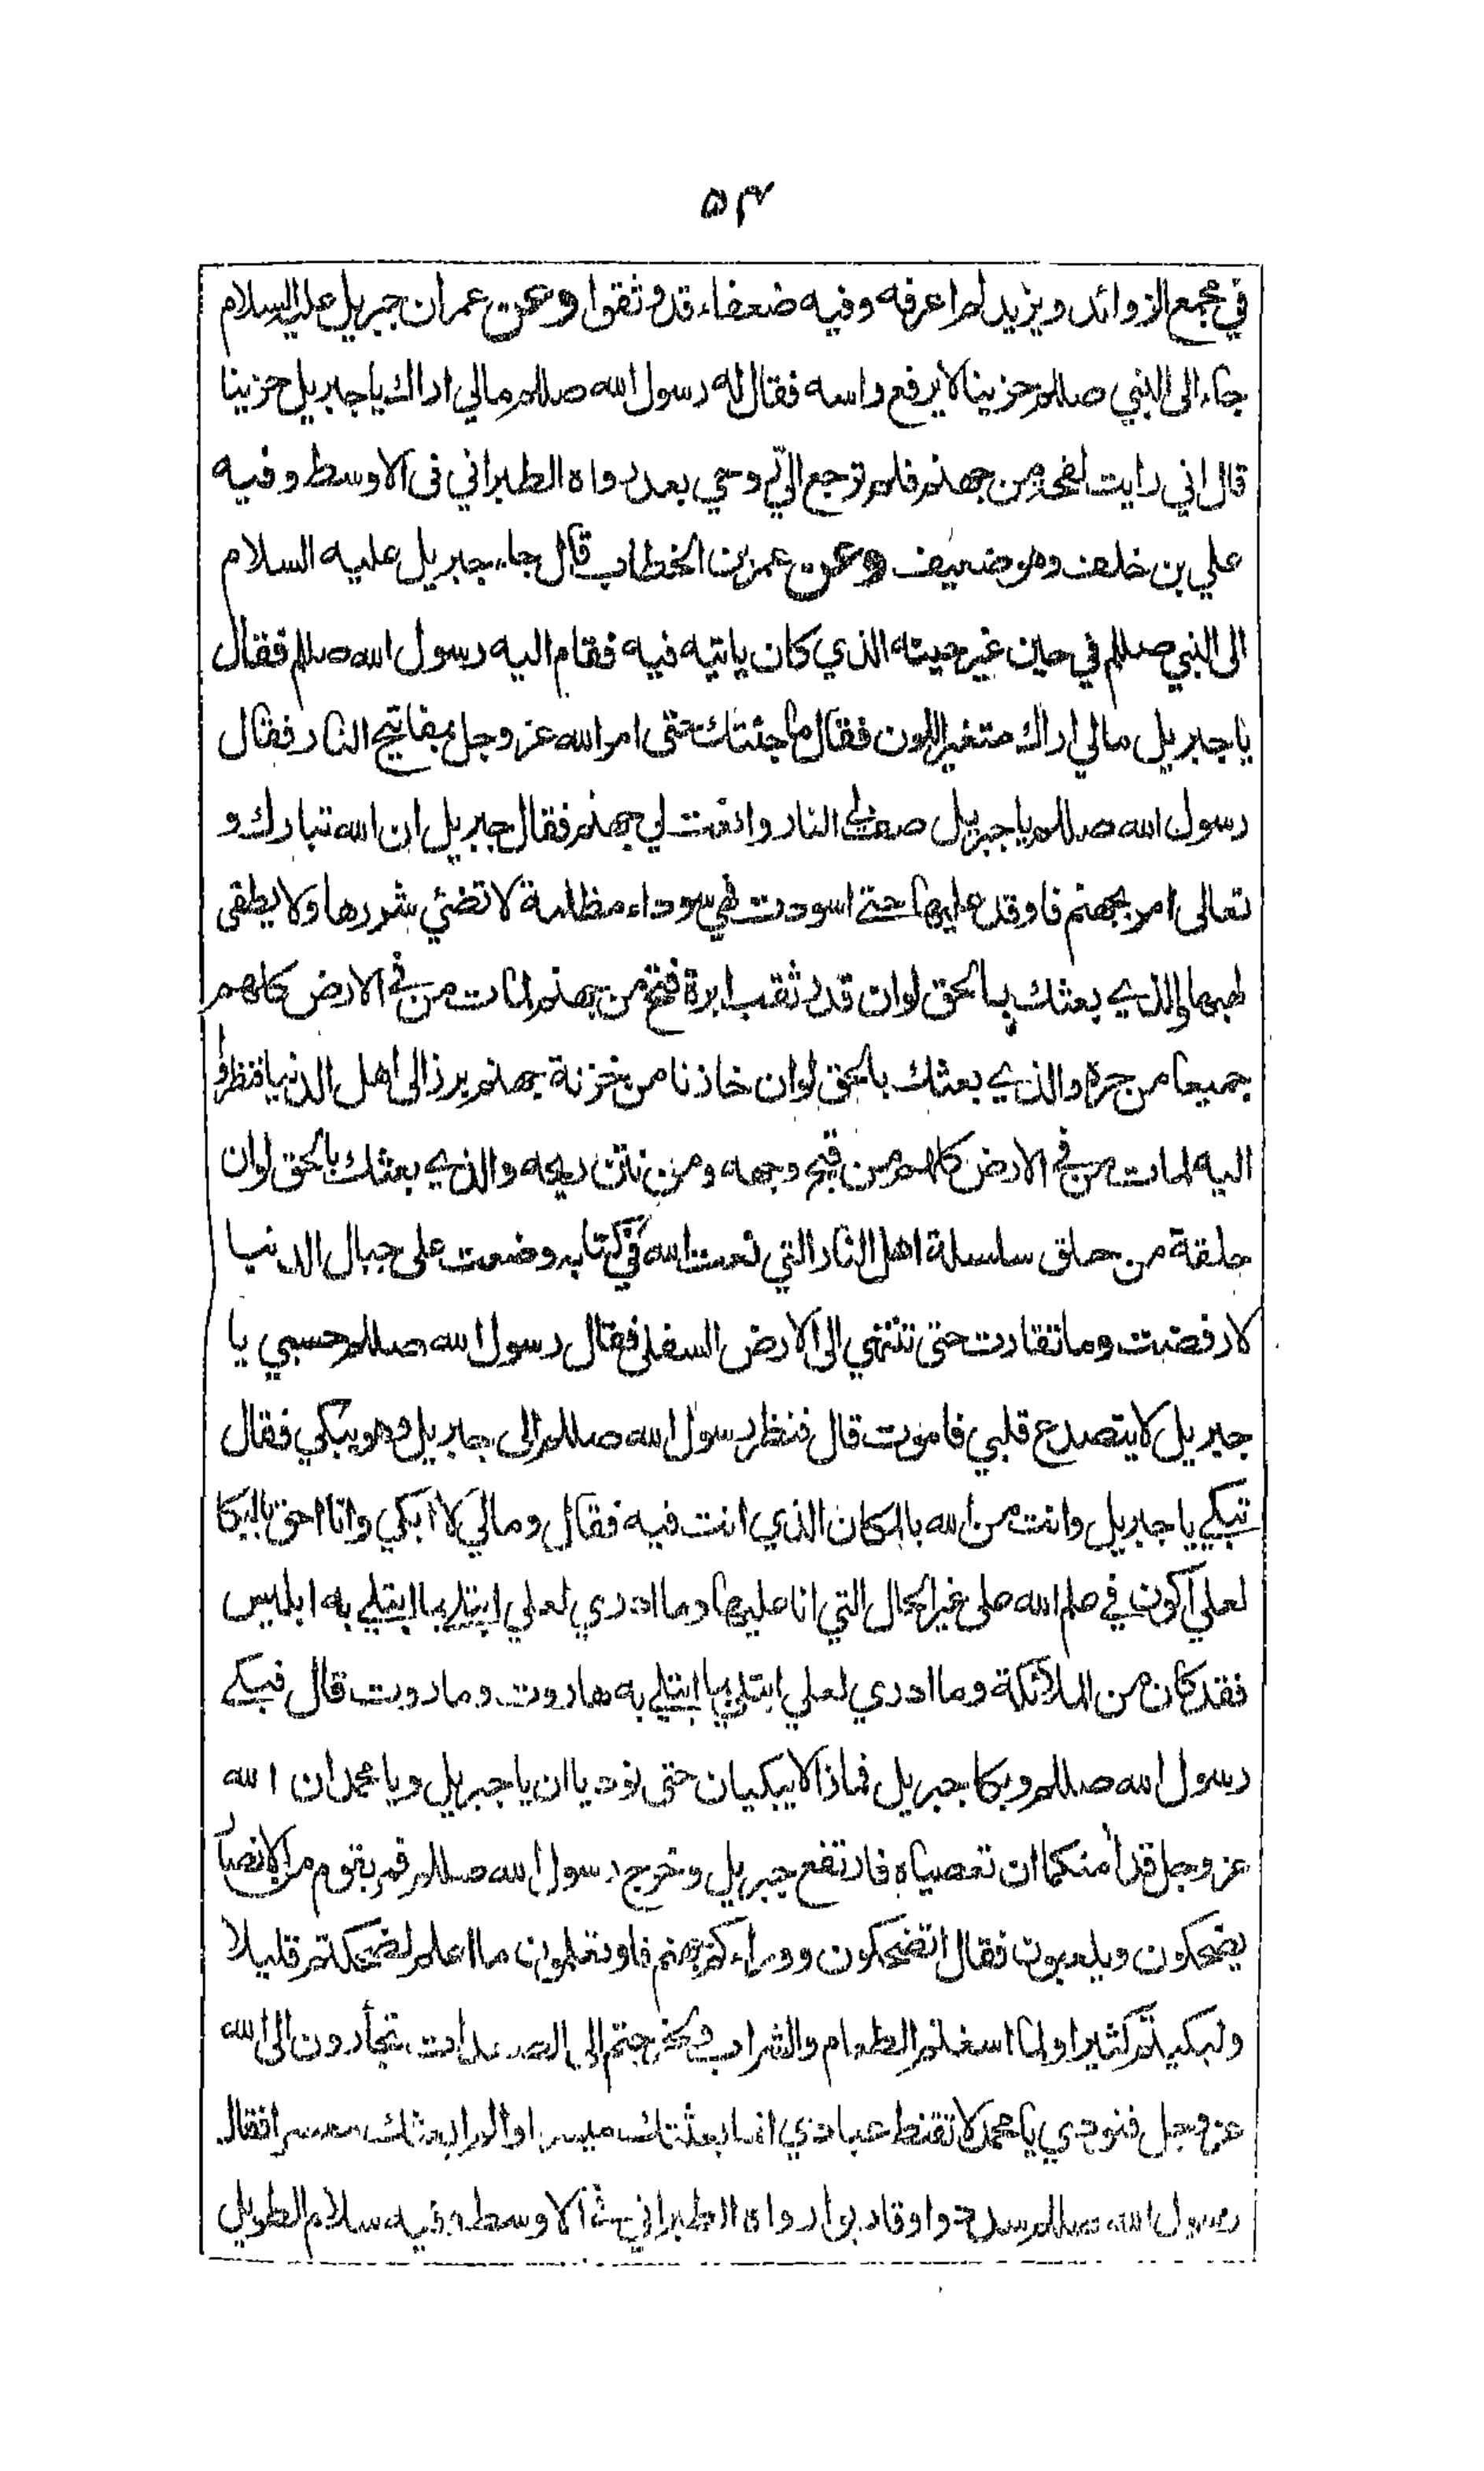 ٥٤
في مجمع الزوائد ويزيد لم اعرفه وفيه ضعفاء قد وثقوا وعن عمران جبريل عليه السلام
جاء الى النبي صللم حزينا لا يرفع راسه فقال له رسول الله صللم مالي اراك يا جبريل حزينا
قال اني رايت لفحة من جهنم فلم ترجع الي روحي بعد رواه الطبراني في الاوسط وفيه
علي بن خلف وهو ضعيف وعن عمر بن الخطاب قال جاء جبريل عليه السلام
الى النبي صللم في حين غير حينه الذي كان ياتيه فيه فقام اليه رسول الله صللم فقال
يا جبريل مالي اراك متغير اللون فقال ما جئتك حتى امر الله عز وجل بمفاتيح النار فقال
رسول الله صللم يا جبريل صف لي النار وانعت لي جهنم فقال جبريل ان الله تبارك و
تعالى امر بجهنم فاوقد عليها حتى اسودت فهي سوداء مظلمة لا تضئي شررها ولا يطفى
لهبها والذي بعثك بالحق لو ان قدر ثقب ابرة فتح من جهنم لمات من في الارض كلهم
جميعا من حره والذي بعثك بالحق لو ان خازنا من خزنة جهنم برز الى اهل الدنيا فنظروا
اليه لمات من في الارض كلهم من قبح وجهه ومن نتن ريحه والذي بعثك بالحق لو ان
حلقة من حلق سلسلة اهل النار التي نعت الله في كتابه وضعت على جبال الدنيا
لارفضت وما تقارت حتى تنتهي الى الارض السفلى فقال رسول الله صللم حسبي يا
جبريل لا يتصدع قلبي فاموت قال فنظر رسول الله صللم الى جبريل وهو يبكي فقال
تبكي يا جبريل وانت من الله بالمكان الذي انت فيه فقال ومالي لا ابكي وانا احق بالبكا
لعلي اكون في علم الله على غير الحال التي انا عليها وما ادري لعلي ابتلى بما ابتلي به ابليس
فقد كان من الملائكة وما ادري لعلي ابتلى بما ابتلي به هاروت وماروت قال فبكى
رسول الله صللم وبكا جبريل فمازالا يبكيان حتى نوديا ان يا جبريل ويا محمد ان الله
عز وجل قد أمنكما ان تعصياه فارتفع جبريل وخرج رسول الله صللم فمر بقوم من الانصار
يضحكون ويلعبون فقال اتضحكون ووراءكم جهنم فلو تعلمون ما اعلم لضحكتم قليلا
ولبكيتم كثيرا ولما اسغتم الطعام والشراب ولخرجتم الى الصعدات تجأرون الى الله
عز وجل فنودي يا محمد لا تقنط عبادي انما بعثتك ميسرا ولم ابعثك معسرا فقال
رسول الله صللم سددوا وقاربوا رواه الطبراني في الاوسط وفيه سلام الطويل